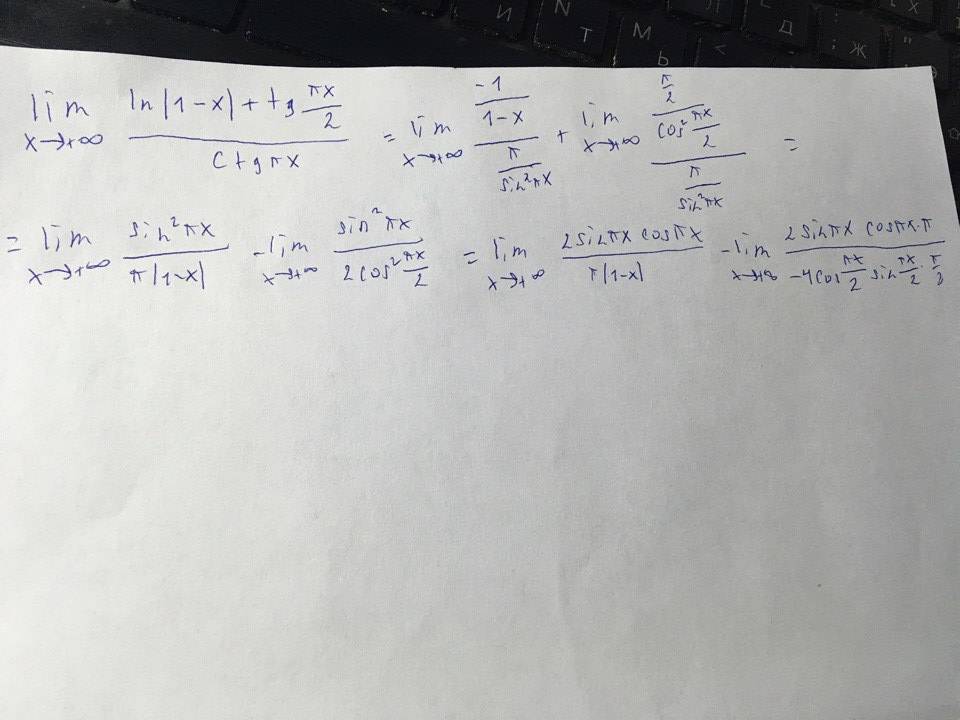 lim x→+∞ (ln|1-x| + tg πx/2) / (ctg πx) = lim x→+∞ (-1/(1-x)) / (π/sin²πx) + lim x→+∞ ((π/2)/(cos² πx/2)) / (π/sin²πx) =
= lim x→+∞ sin²πx / (π|1-x|) - lim x→+∞ sin²πx / (2cos² πx/2) = lim x→+∞ 2sinπx cosπx / (π|1-x|) - lim x→+∞ 2sinπx cosπx·π / (-4cos πx/2 sin πx/2 ·
И
N
Т
М
Ь
Д
<
;
Ж
Х